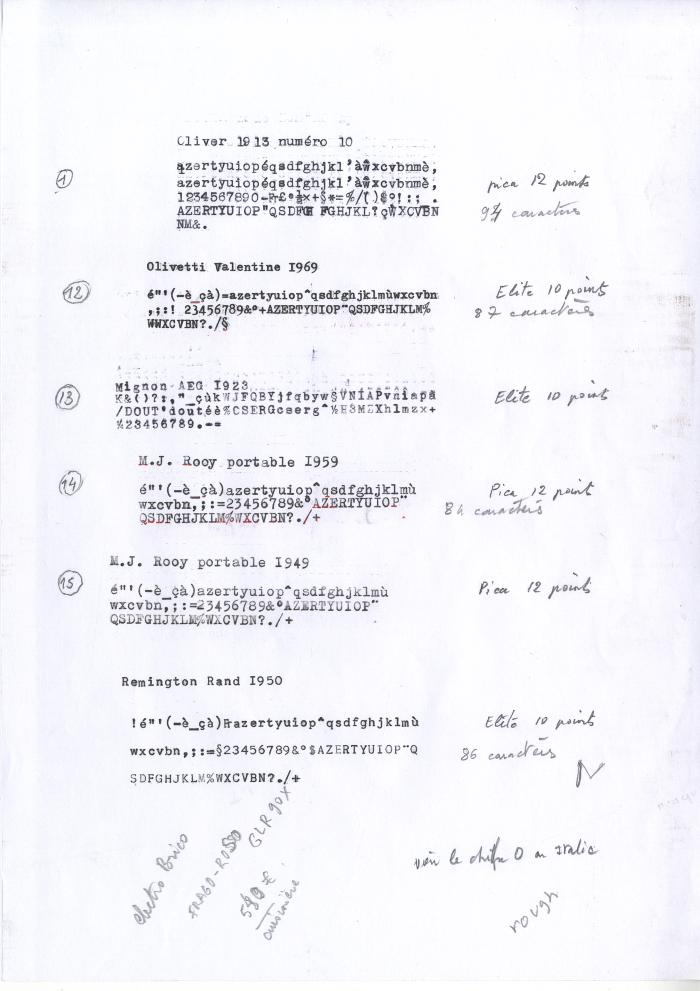 Oliver 1913 numéro 10
1
azertyuiopéqsdfghjkl'àŵxcvbnmè,
azertyuiopéqsdfghjkl'àŵxcvbnmè,
pica 12 points
1234567890-Fr£º½×+§*=%/()$º!:; .
94 caractères
AZERTYUIOP"QSDFGH FGHJKL?çŴXCVBN
NM&.
Olivetti Valentine I969
12
é"'(-è_çà)=azertyuiop^qsdfghjklmùwxcvbn
Elite 10 points
,;:! 23456789&°+AZERTYUIOP¨QSDFGHJKLM%
87 caractères
WWXCVBN?./§
Mignon AEG I923
13
K&()?:,"_çùkWJFQBYjfqbyw§VNIAPvniapâ
Elite 10 point
/DOUT'doutéè%CSERGcserg^½H3MZXhlmzx+
¼23456789.-=
M.J. Rooy portable I959
14
é"'(-è_çà)azertyuiop^qsdfghjklmù
Pica 12 point
wxcvbn,;:=23456789&°AZERTYUIOP¨
84 caractères
QSDFGHJKLM%WXCVBN?./+
M.J. Rooy portable I949
15
é"'(-è_çà)azertyuiop^qsdfghjklmù
Pica 12 points
wxcvbn,;:=23456789&°AZERTYUIOP¨
QSDFGHJKLM%WXCVBN?./+
Remington Rand I950
!é"'(-è_çà)Frazertyuiop^qsdfghjklmù
Elite 10 points
wxcvbn,;:=§23456789&°$AZERTYUIOP¨Q
86 caractères
SDFGHJKLM%WXCVBN?./+
N
Electro Brico
FRAGO-ROSSO
GLR 90X
590 €
cuisinière
voir le chiffre 0 en italic
rough